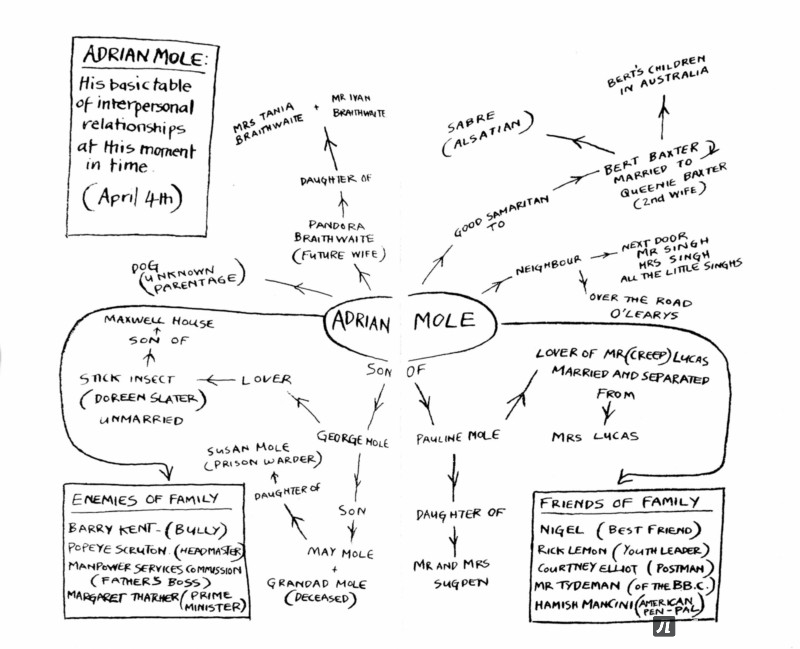 ADRIAN MOLE:
His basic table
of interpersonal
relationships
at this moment
in time
(April 4th)
MRS TANIA
BRAITHWAITE
+
MR IVAN
BRAITHWAITE
DAUGHTER OF
PANDORA
BRAITHWAITE
(FUTURE WIFE)
DOG
(UNKNOWN
PARENTAGE)
BERT'S CHILDREN
IN AUSTRALIA
SABRE
(ALSATIAN)
BERT BAXTER
MARRIED TO
QUEENIE BAXTER
(2nd WIFE)
GOOD SAMARITAN
TO
NEIGHBOUR
NEXT DOOR
MR SINGH
MRS SINGH
ALL THE LITTLE SINGHS
OVER THE ROAD
O'LEARYS
ADRIAN MOLE
SON OF
MAXWELL HOUSE
SON OF
STICK INSECT
(DOREEN SLATER)
UNMARRIED
LOVER
GEORGE MOLE
SUSAN MOLE
(PRISON WARDER)
DAUGHTER OF
SON
MAY MOLE
+
GRANDAD MOLE
(DECEASED)
PAULINE MOLE
LOVER OF MR (CREEP) LUCAS
MARRIED AND SEPARATED
FROM
MRS LUCAS
DAUGHTER OF
MR AND MRS
SUGDEN
ENEMIES OF FAMILY
BARRY KENT - (BULLY)
POPEYE SCRUTON (HEADMASTER)
MANPOWER SERVICES COMMISSION
(FATHERS BOSS)
MARGARET THATHER (PRIME
MINISTER)
FRIENDS OF FAMILY
NIGEL (BEST FRIEND)
RICK LEMON (YOUTH LEADER)
COURTNEY ELLIOT (POSTMAN)
MR TYDEMAN (OF THE BB.C.)
HAMISH MANCINI (AMERICAN
PEN-PAL)
Л